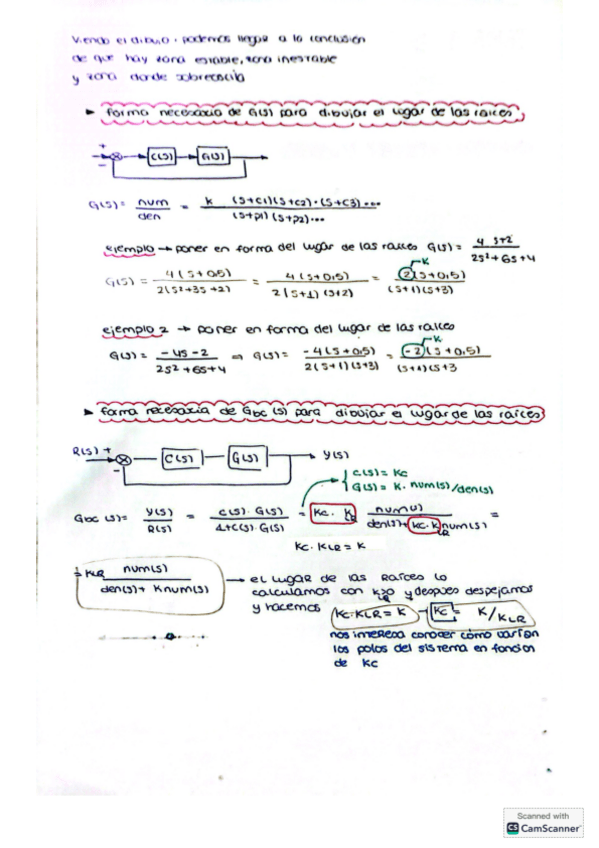 Viendo el dibujo, podemos llegar a la conclusión
de que hay zona estable, zona inestable
y zona donde sobreoscila
► forma necesaria de G(s) para dibujar el lugar de las raíces,
+
-
C(s)
G(s)
G(s) = num/den = k (s+c1)(s+c2)·(s+c3)... / (s+p1)(s+p2)...
ejemplo → poner en forma del lugar de las raíces G(s) = 4 s+2 / 2s²+6s+4
G(s) = 4(s+0,5) / 2(s²+3s+2) = 4(s+0,5) / 2(s+1)(s+2) = 2(s+0,5) / (s+1)(s+3)
K
ejemplo 2 → poner en forma del lugar de las raíces
G(s) = -4s-2 / 2s²+6s+4 ⇒ G(s) = -4(s+0,5) / 2(s+1)(s+3) = -2(s+0,5) / (s+1)(s+3
K
► forma necesaria de Gbc(s) para dibujar el lugar de las raíces
R(s) +
-
C(s)
G(s)
Y(s)
C(s) = Kc
G(s) = K· num(s)/den(s)
Gbc(s) = Y(s)/R(s) = C(s)·G(s) / 1+C(s)·G(s) = Kc· K num(s) / den(s)+ Kc·K num(s) =
LR
LR
Kc· KLR = K
KLR num(s) / den(s)+ Knum(s)
→ el lugar de las raíces lo
calculamos con k y después despejamos
y hacemos Kc·KLR = K → Kc = K/KLR
nos interesa conocer cómo varían
los polos del sistema en función
de Kc
Scanned with
CS CamScanner